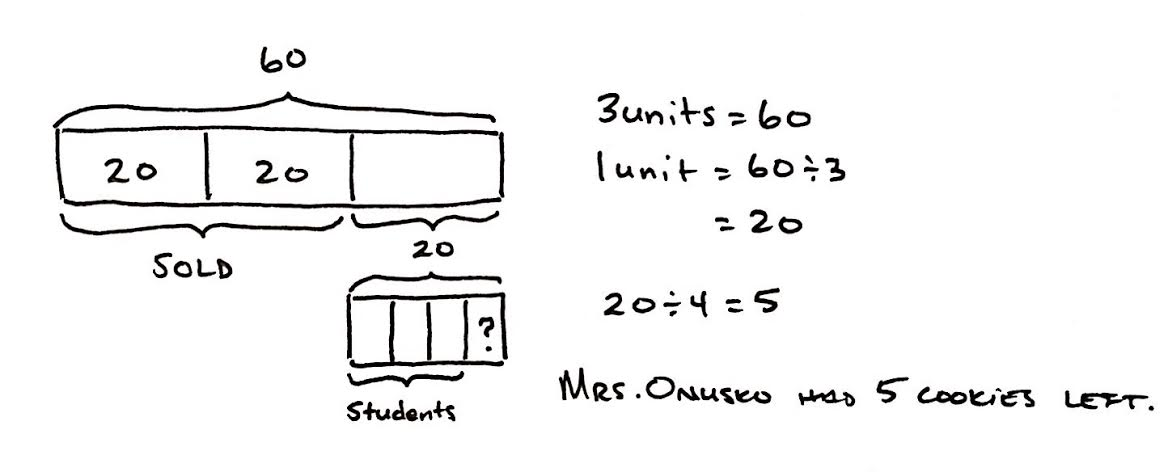 60
20 20
SOLD
20
?
Students
3 units = 60
1 unit = 60 ÷ 3
= 20
20 ÷ 4 = 5
MRS. ONUSKO HAD 5 COOKIES LEFT.